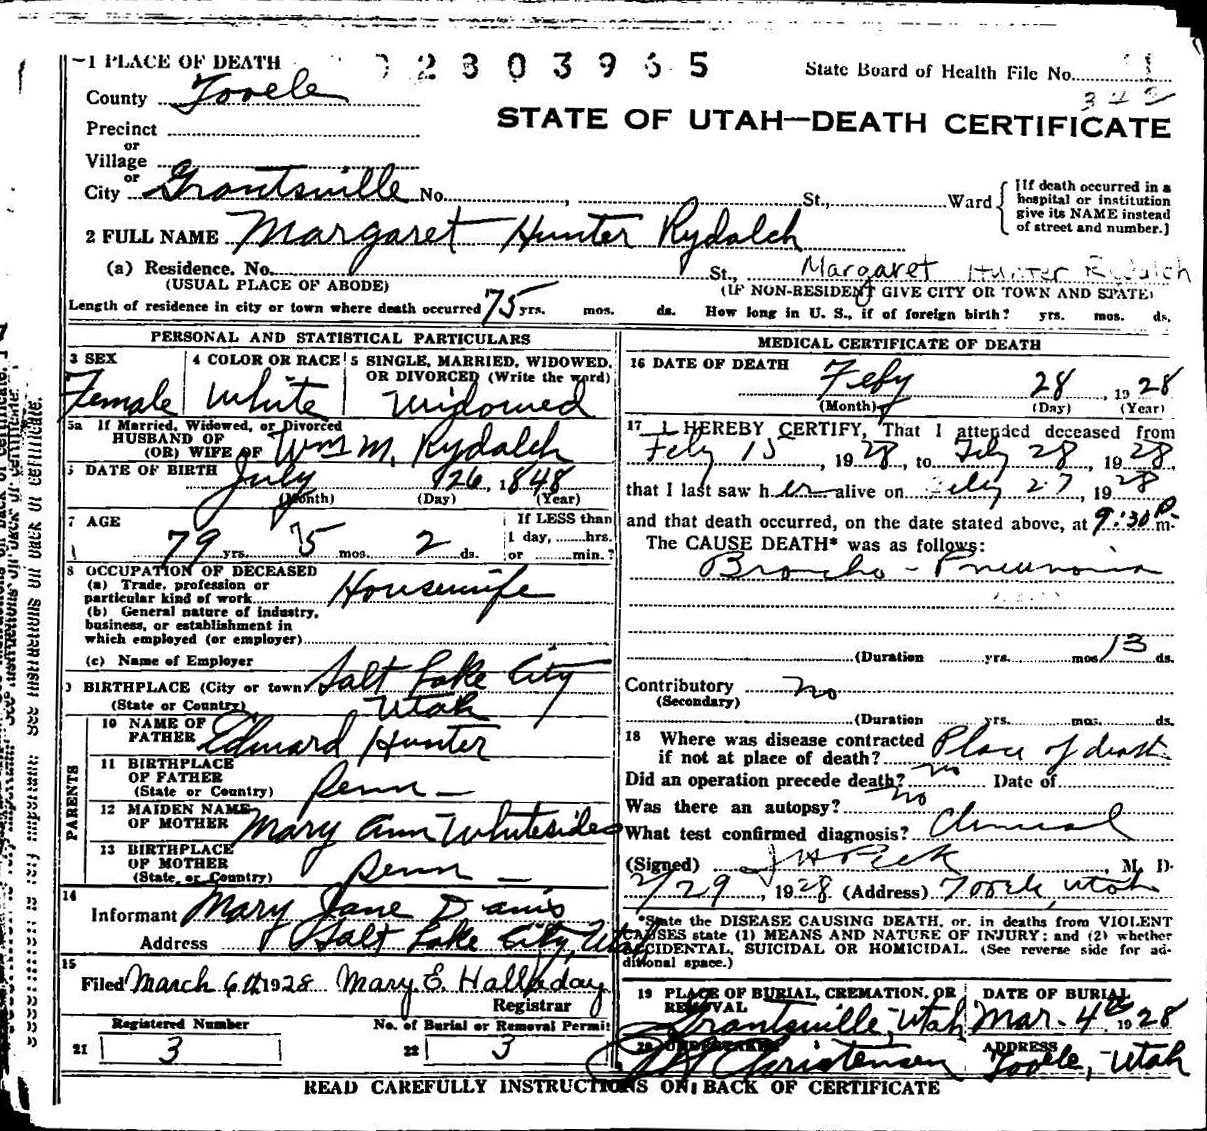 1 PLACE OF DEATH 2303965 State Board of Health File No.
County Tooele 342
STATE OF UTAH—DEATH CERTIFICATE
Precinct
or
Village
or
City Grantsville No. , St., Ward {[If death occurred in a hospital or institution give its NAME instead of street and number.]
2 FULL NAME Margaret Hunter Rydalch
(a) Residence. No. St., Margaret Hunter Rydalch
(USUAL PLACE OF ABODE) (IF NON-RESIDENT GIVE CITY OR TOWN AND STATE)
Length of residence in city or town where death occurred 75 yrs. mos. ds. How long in U. S., if of foreign birth? yrs. mos. ds.
PERSONAL AND STATISTICAL PARTICULARS
3 SEX 4 COLOR OR RACE 5 SINGLE, MARRIED, WIDOWED, OR DIVORCED (Write the word)
Female White Widowed
5a If Married, Widowed, or Divorced
HUSBAND OF
(OR) WIFE OF Wm M. Rydalch
DATE OF BIRTH July 26, 1848
(Month) (Day) (Year)
7 AGE 79 yrs. 5 mos. 2 ds.
If LESS than
1 day, hrs.
or min.?
8 OCCUPATION OF DECEASED
(a) Trade, profession or
particular kind of work Housewife
(b) General nature of industry,
business, or establishment in
which employed (or employer)
(c) Name of Employer
9 BIRTHPLACE (City or town) Salt Lake City
(State or Country) Utah
PARENTS
10 NAME OF
FATHER Edward Hunter
11 BIRTHPLACE
OF FATHER
(State or Country) Penn —
12 MAIDEN NAME
OF MOTHER Mary Ann Whitesides
13 BIRTHPLACE
OF MOTHER
(State, or Country) Penn —
14
Informant Mary Jane Davis
Address Salt Lake City, Utah
15
Filed March 6th 1928 Mary E. Halladay
Registrar
Registered Number No. of Burial or Removal Permit
21 3 22 3
MEDICAL CERTIFICATE OF DEATH
16 DATE OF DEATH Feby 28, 1928
(Month) (Day) (Year)
17 I HEREBY CERTIFY, That I attended deceased from
Feby 15, 1928, to Feby 28, 1928,
that I last saw her alive on Feby 27, 1928
and that death occurred, on the date stated above, at 9:30 P. m.
The CAUSE DEATH* was as follows:
Broncho - Pneumonia
(Duration yrs. mos. 13 ds.
Contributory no
(Secondary)
(Duration yrs. mos. ds.
18 Where was disease contracted
if not at place of death? Place of death
Did an operation precede death? no Date of
Was there an autopsy? no
What test confirmed diagnosis? Clinical
(Signed) J H Peck M. D.
2/29, 1928 (Address) Tooele, Utah
*State the DISEASE CAUSING DEATH, or, in deaths from VIOLENT
CAUSES state (1) MEANS AND NATURE OF INJURY; and (2) whether
ACCIDENTAL, SUICIDAL OR HOMICIDAL. (See reverse side for ad-
ditional space.)
19 PLACE OF BURIAL, CREMATION, OR REMOVAL DATE OF BURIAL
Grantsville, Utah Mar. 4th 1928
20 UNDERTAKER ADDRESS
Christensen Tooele, Utah
READ CAREFULLY INSTRUCTIONS ON BACK OF CERTIFICATE